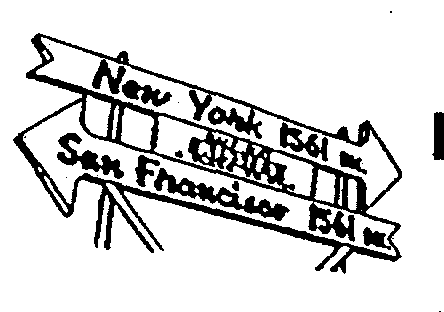 New York 1561 m.
San Francisco 1561 m.